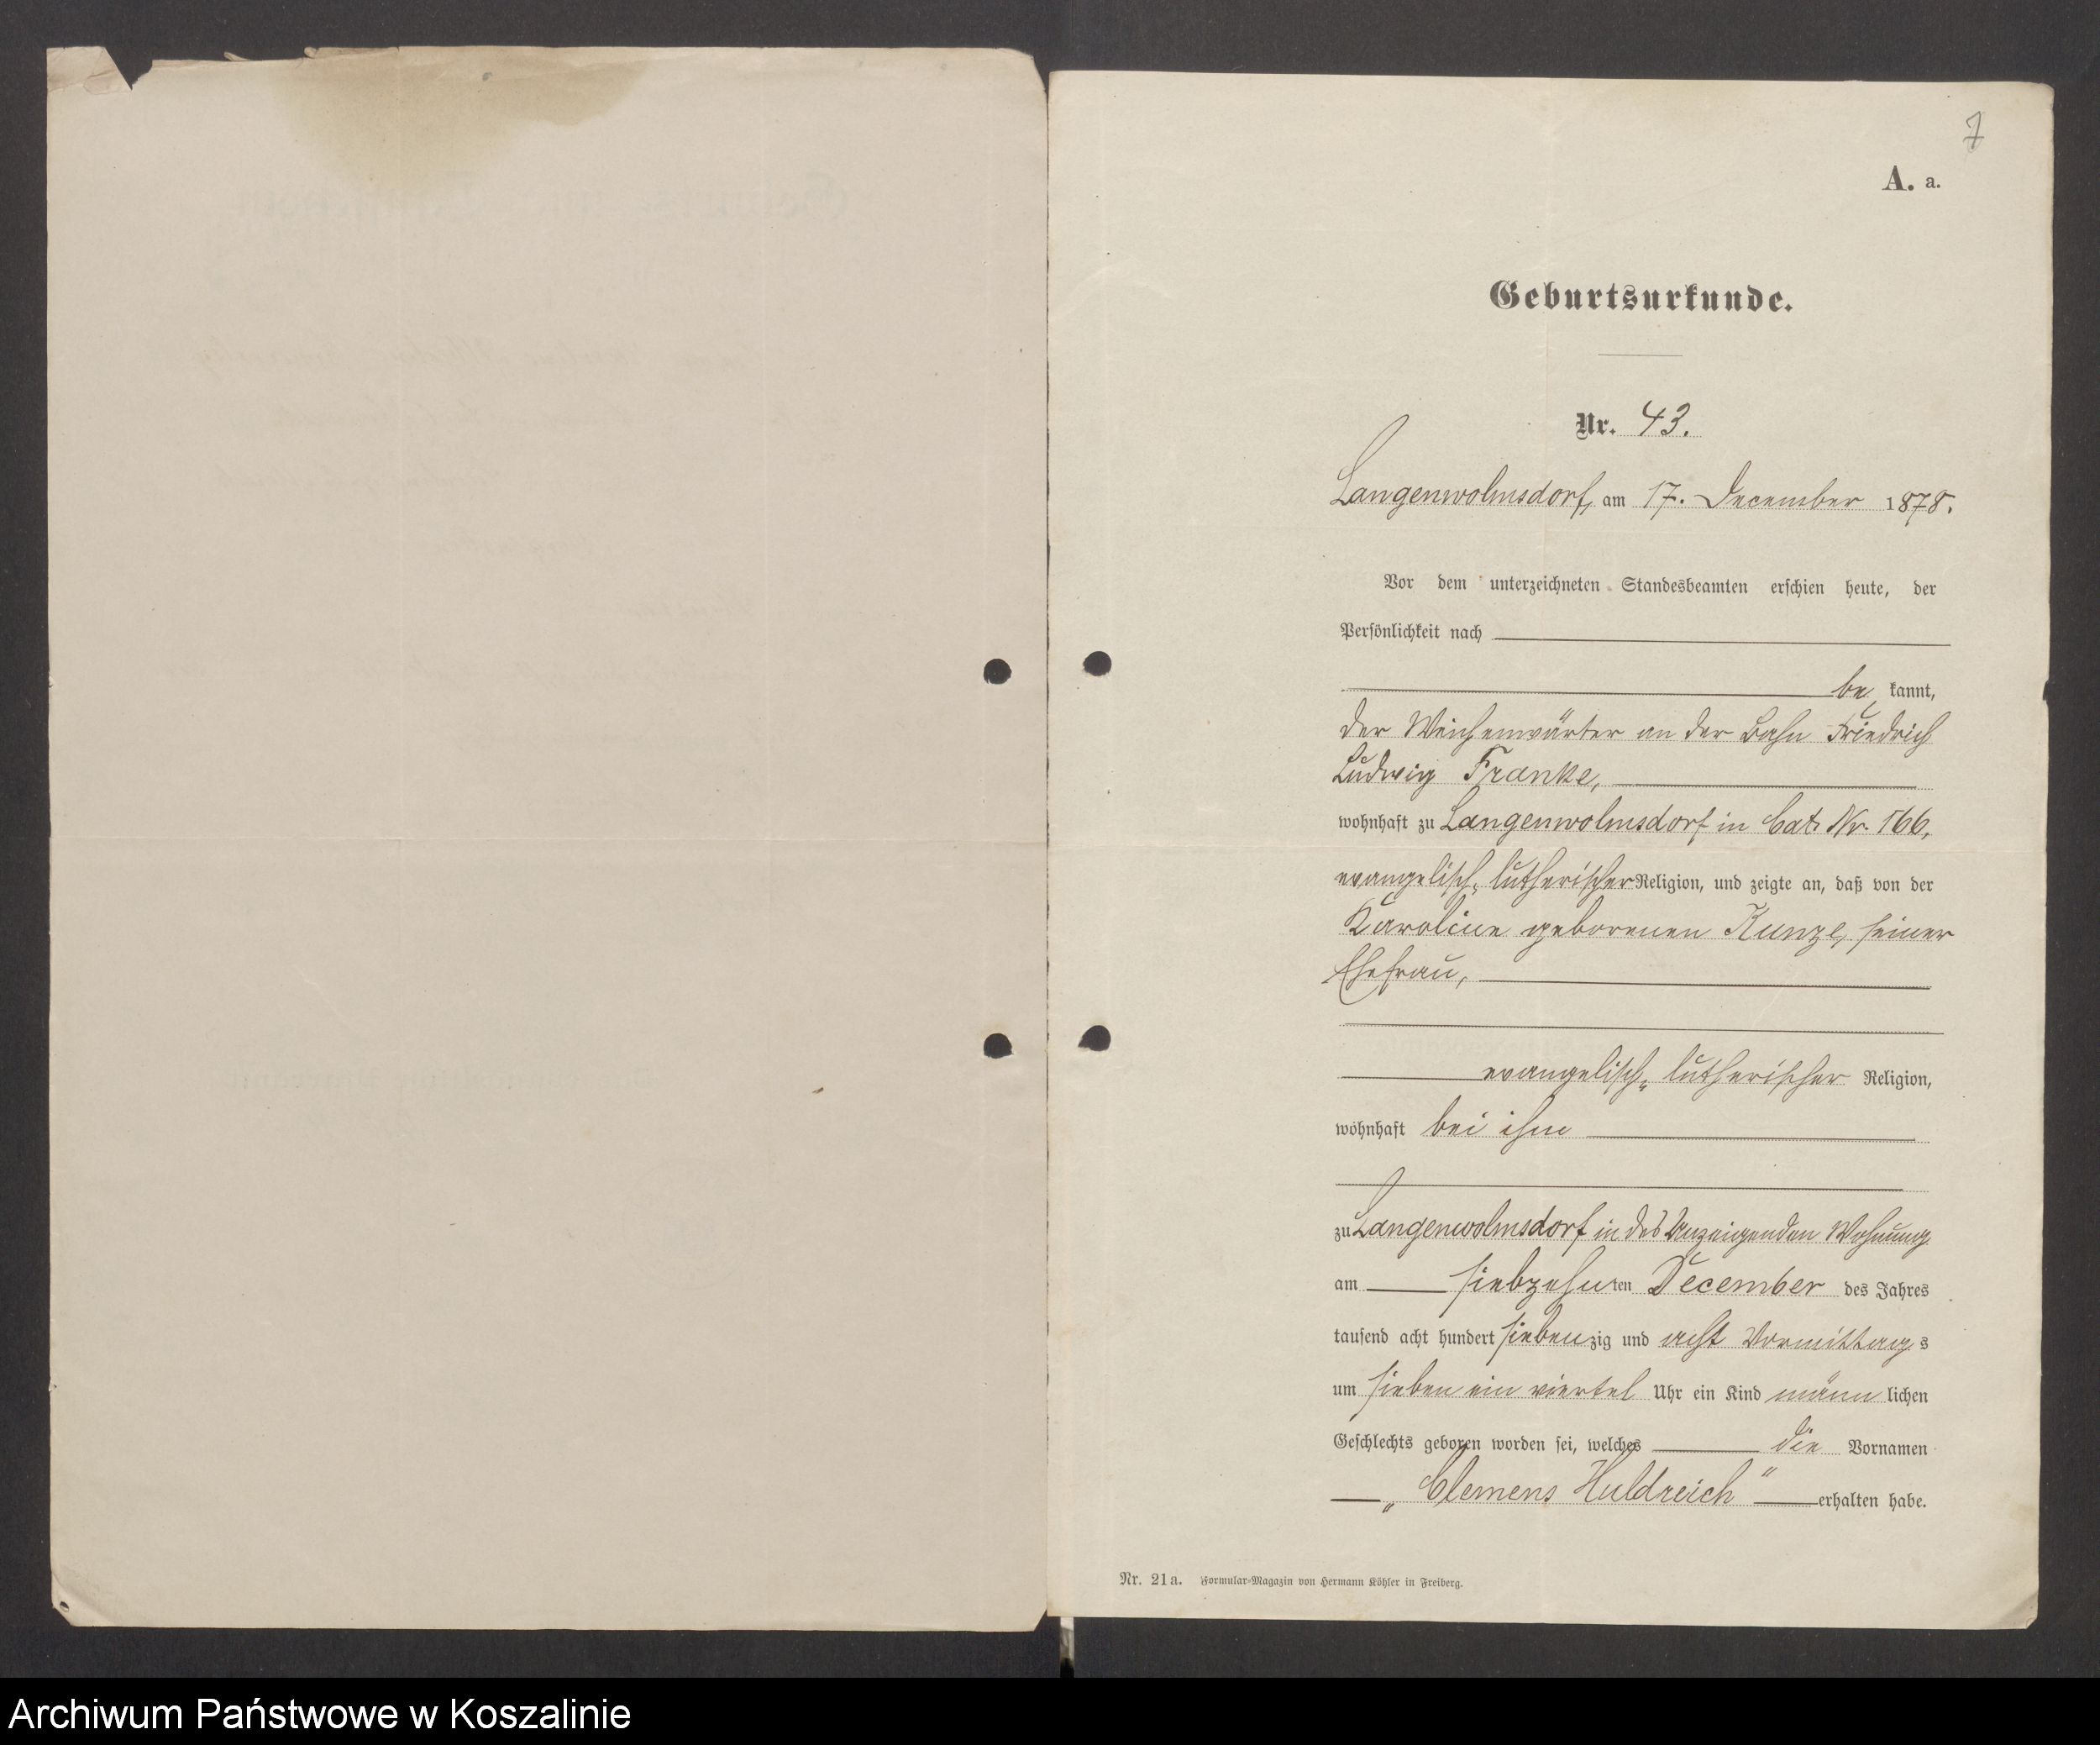 7
A. a.
Geburtsurkunde.
Nr. 43.
Langenwolmsdorf, am 17. December 1878.
Vor dem unterzeichneten Standesbeamten erschien heute, der
Persönlichkeit nach
be kannt,
der Weichenwärter an der Bahn Friedrich
Ludwig Franke,
wohnhaft zu Langenwolmsdorf in Cat. Nr. 166,
evangelisch-lutherischer Religion, und zeigte an, daß von der
Karoline geborenen Kunze, seiner
Ehefrau,
evangelisch-lutherischer Religion,
wohnhaft bei ihm
zu Langenwolmsdorf in des Anzeigenden Wohnung
am siebzehnten December des Jahres
tausend acht hundert siebenzig und acht Vormittags
um sieben ein viertel Uhr ein Kind männlichen
Geschlechts geboren worden sei, welches die Vornamen
„Clemens Huldreich“ erhalten habe.
Nr. 21a. Formular-Magazin von Hermann Köhler in Freiberg.
Archiwum Państwowe w Koszalinie